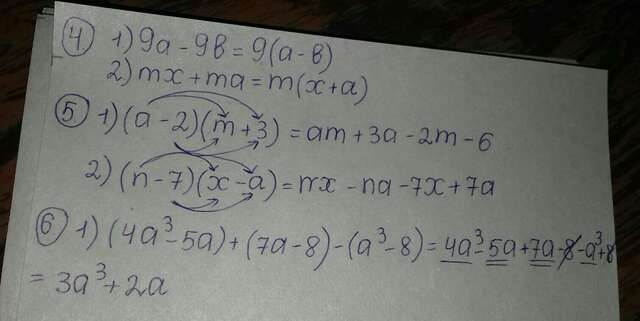 ④ 1) 9a - 9b = 9(a - b)
2) mx + ma = m(x + a)
⑤ 1) (a - 2)(m + 3) = am + 3a - 2m - 6
2) (n - 7)(x - a) = nx - na - 7x + 7a
⑥ 1) (4a³ - 5a) + (7a - 8) - (a³ - 8) = 4a³ - 5a + 7a - 8 - a³ + 8
= 3a³ + 2a